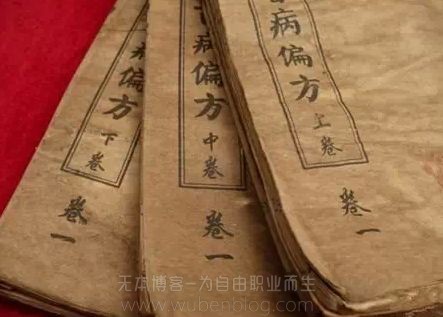 病偏方
上卷
卷一
病偏方
中卷
卷一
病偏方
下卷
卷一
无本博客-为自由职业而生
www.wubenblog.com